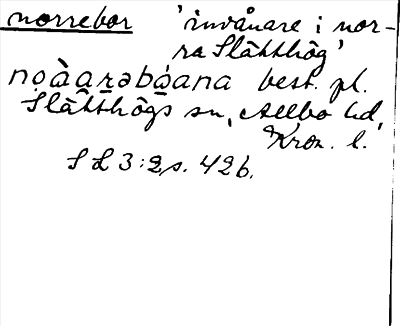 norrebor 'invånare i nor-
ra Slätthög'
best. pl.
Slätthögs sn, Allbo hd,
Kron. l.
S L 3:2 s. 426.